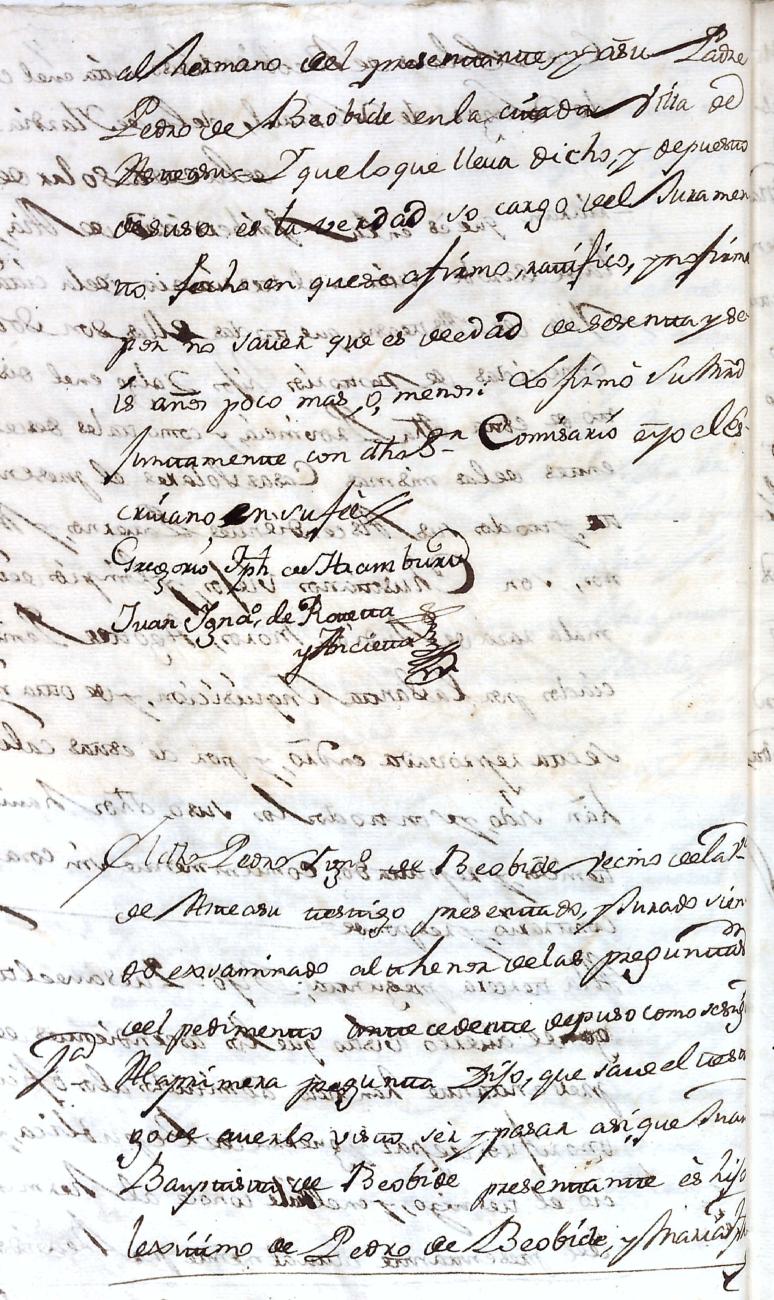 al hermano del presentante, y a su Padre
Pedro de Beobide en la citada Villa de
Asteasu = Y que lo que lleva dicho, y depuesto
desuso es la verdad so cargo del Juramen
tto fecho en que se afirmo, rattifico, y no firmo
por no saver que es de edad de sesentta y se-
is años poco mas, o, menos: Lo firmó Su Mrd
Junttamentte con dho Sr. Comisario e yo el Es-
crivano, en su feè
Gregorio Jph. de
Juan Ignaº. de Rovetta
y Ancietta
Pedro Ignº de Beobide Vecino de la Vª
de Asteasu testtigo presenttado, y Jurado sien
do exsaminado al thenor de las preguntas
del pedimentto antte cedentte depuso como se sigᵉ
1ª A la primera preguntta Dijo, que save el testi
go de averlo visto ser y pasar asi, que Juan
Bauptistta de Beobide presenttantte ès hijo
lexitimo de Pedro de Beobide, y Maria